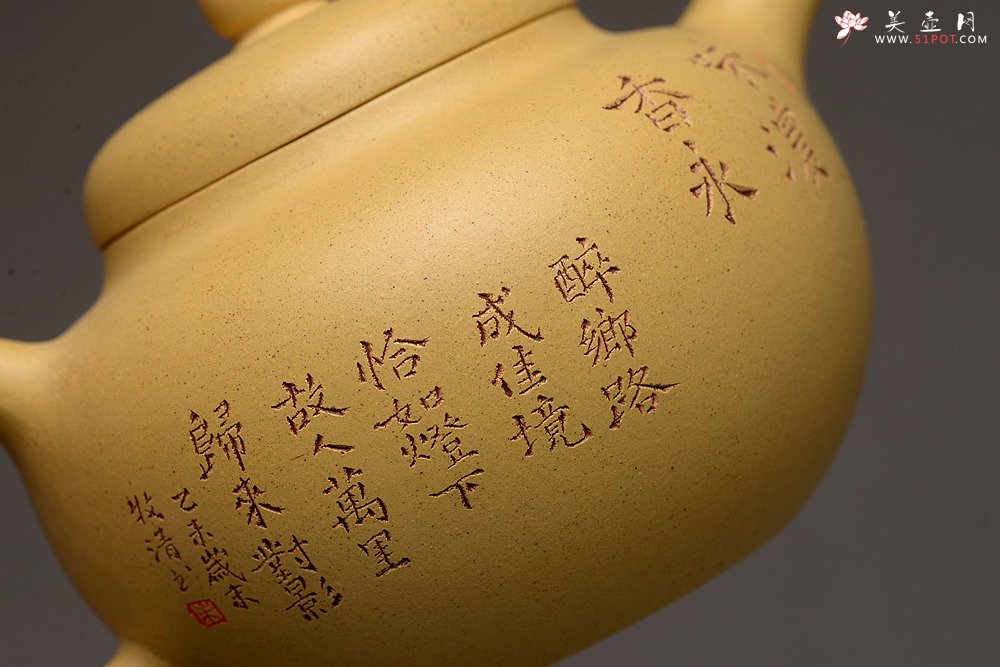 濃
香永
醉鄉路
成佳境
恰如燈下
故人萬里
歸來對影
乙未歲末
牧清书
美壶网
WWW.51POT.COM